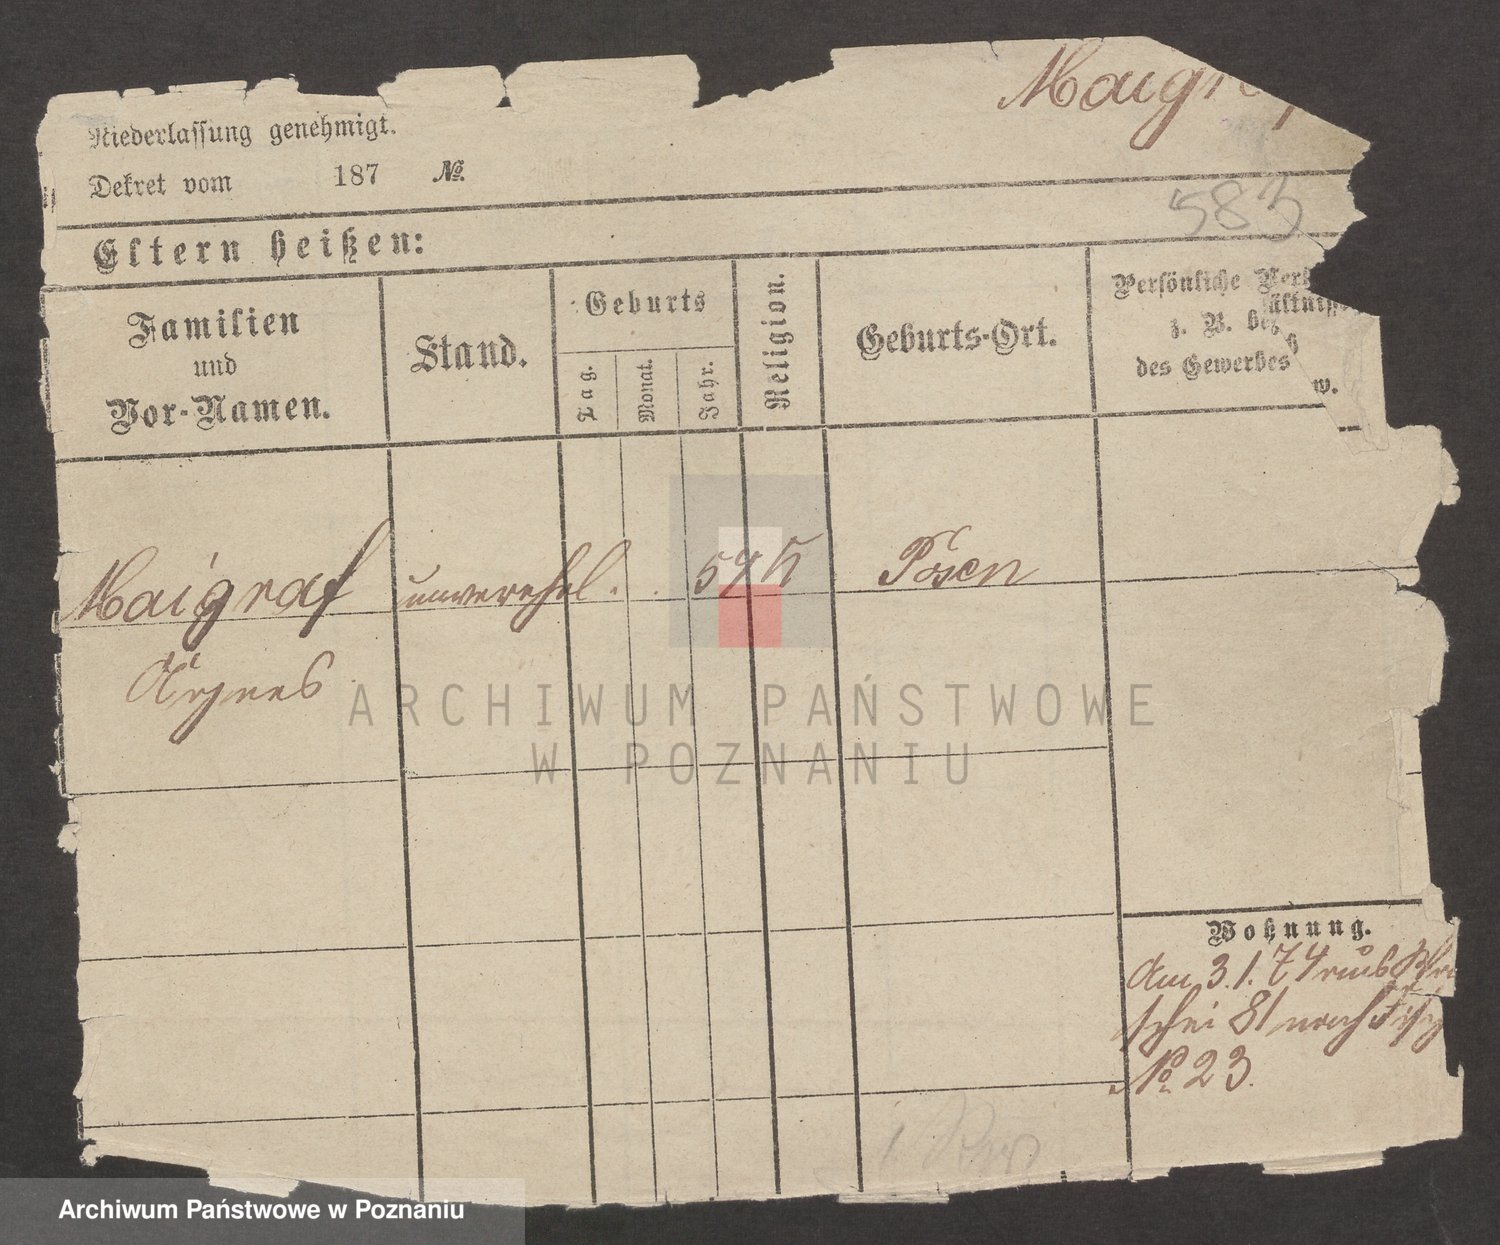 Maigraf
Niederlassung genehmigt.
Dekret vom 187 №.
583
Eltern heißen:
Familien
und
Vor-Namen.
Stand.
Geburts
Tag.
Monat.
Jahr.
Religion.
Geburts-Ort.
Persönliche Ver
ältniss
z. B. bez
des Gewerbes
w.
Maigraf unverehel. 54 k Posen
Agnes
Wohnung.
Am 3.1.74 aus
81 nach Fisch
№ 23.
ARCHIWUM PAŃSTWOWE
W POZNANIU
Archiwum Państwowe w Poznaniu